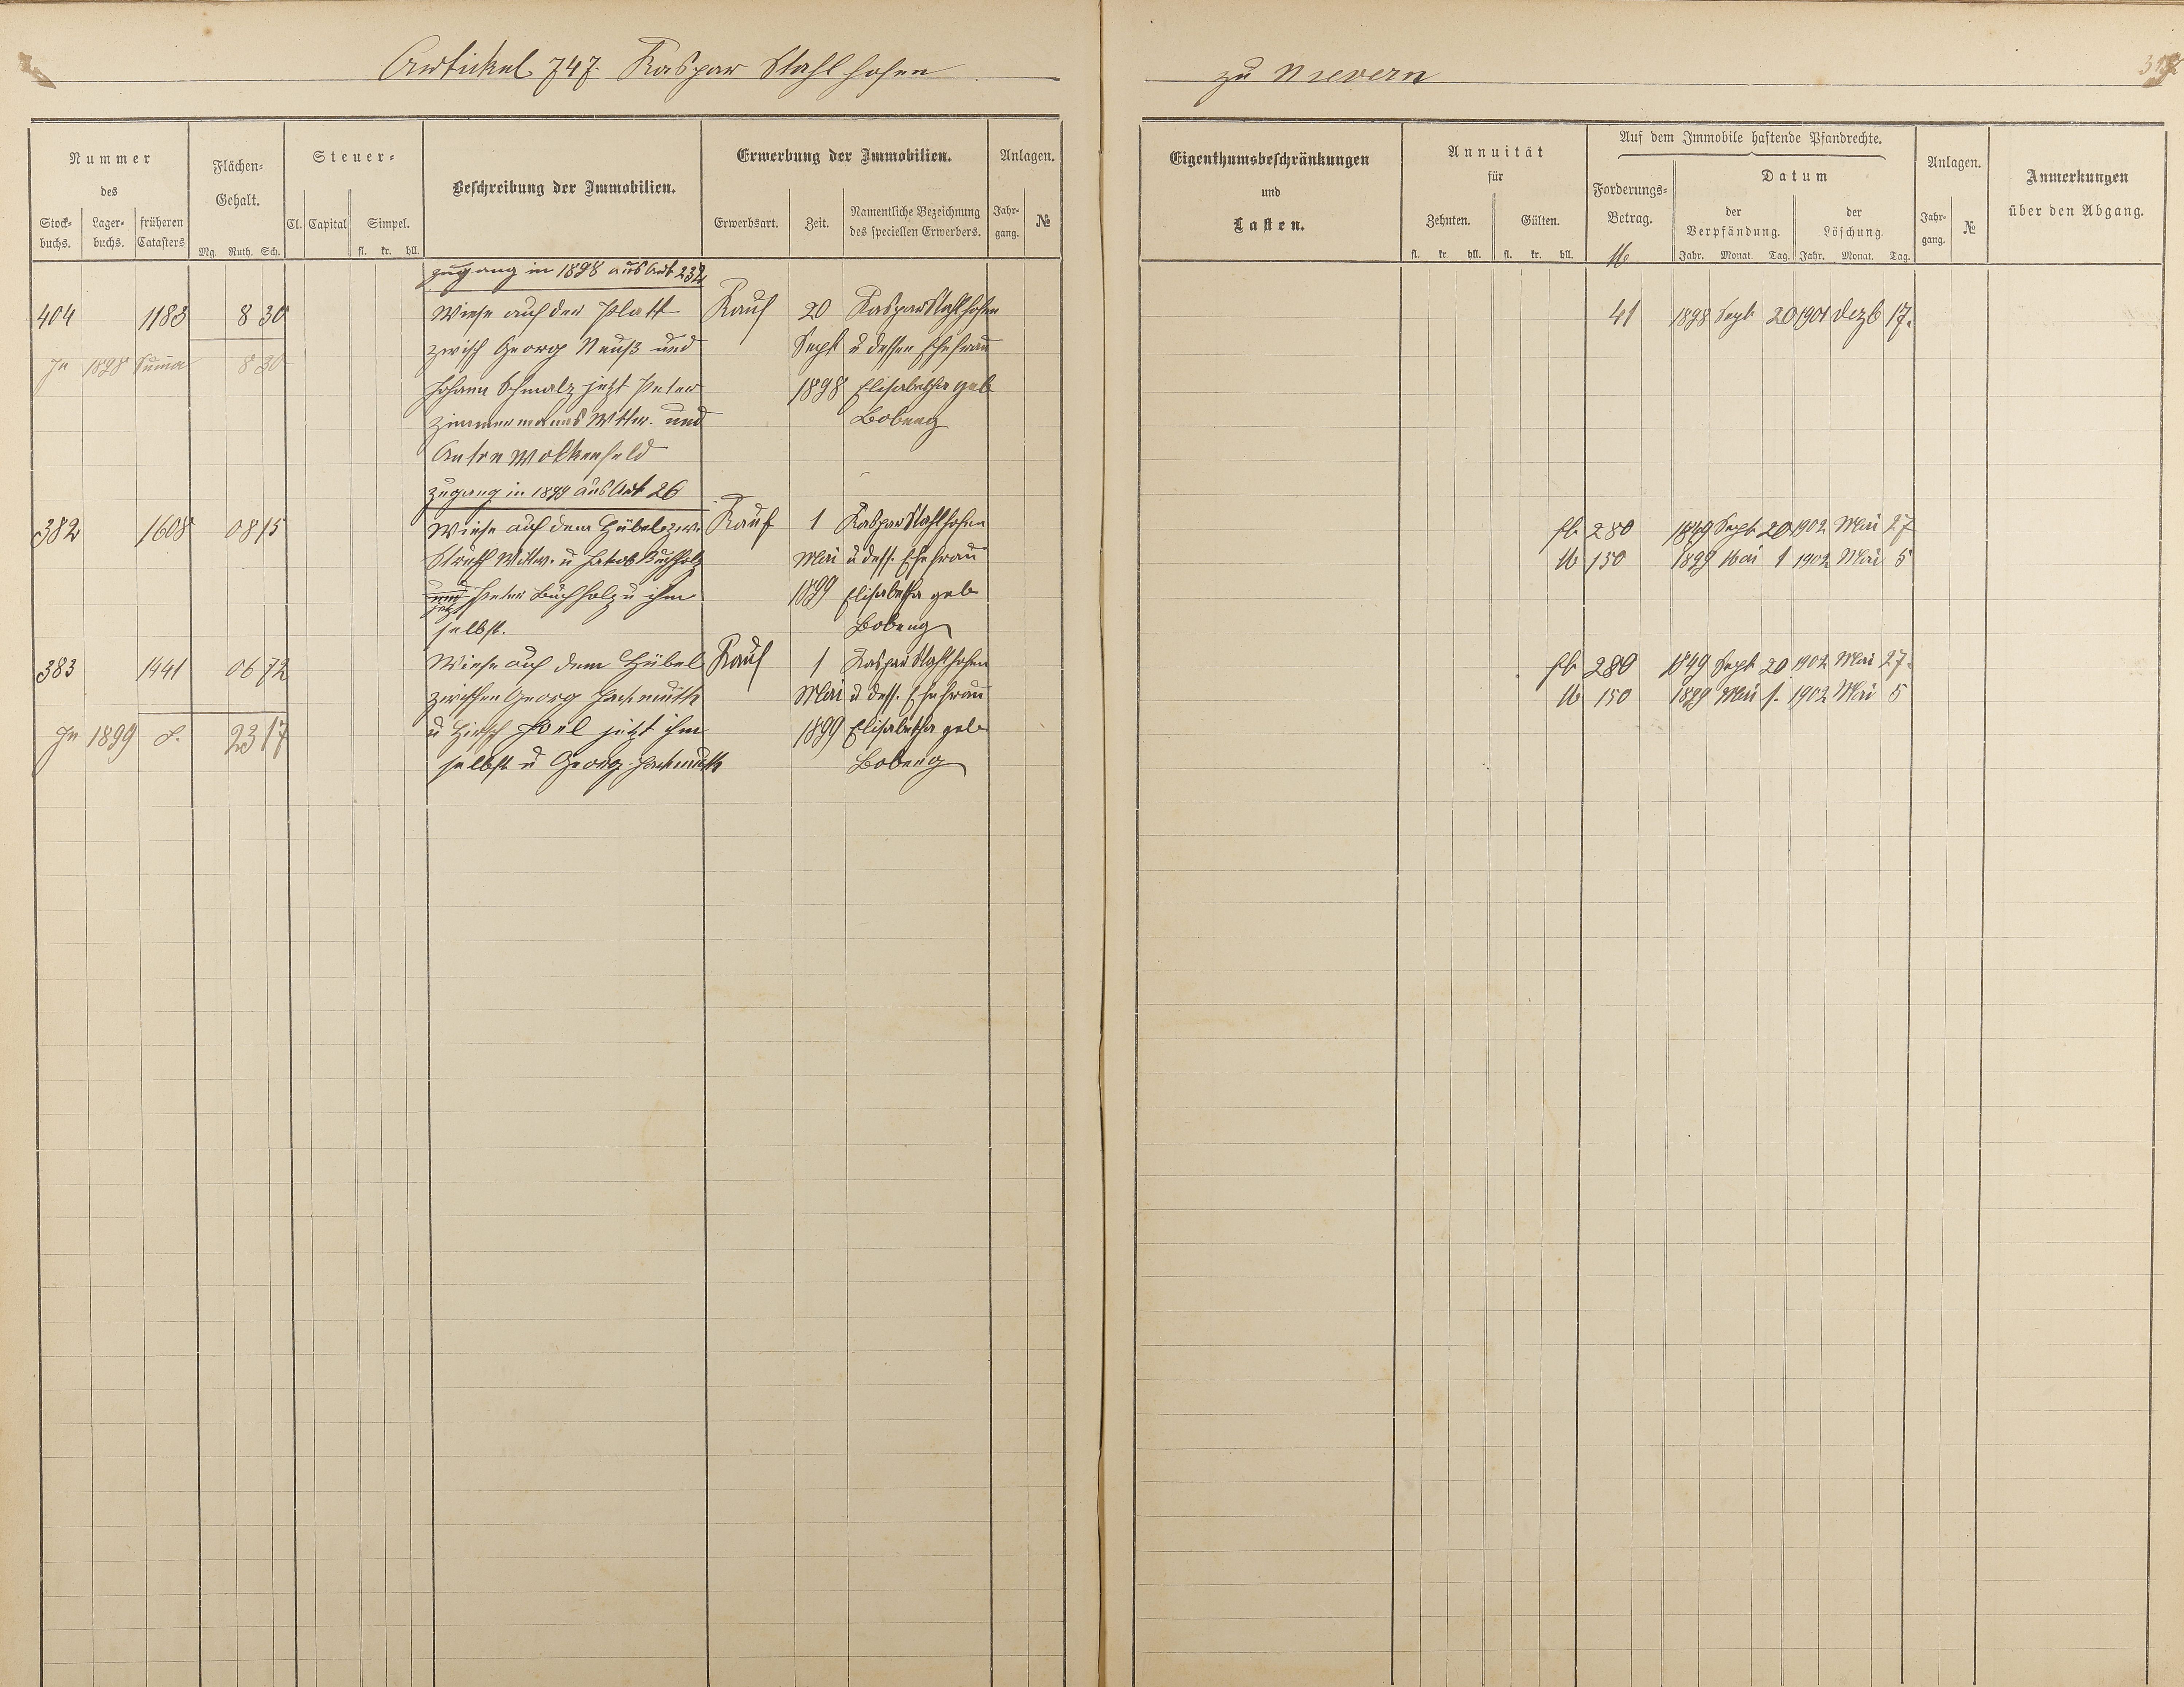 Artikel 747. Kaspar Stahlhofen
zu Nievern
Nummer
des
Stock-buchs. Lager-buchs. früheren Catasters
Flächen-Gehalt.
Mg. Ruth. Sch.
Steuer-
Cl. Capital Simpel.
fl. kr. hll.
Beschreibung der Immobilien.
Erwerbung der Immobilien.
Erwerbsart. Zeit. Namentliche Bezeichnung des speciellen Erwerbers.
Anlagen.
Jahr-gang. №
Zugang in 1898 aus Art 232
404 1183 8 30 Wiese auf der Platt Kauf 20 Kaspar Stahlhofen
zwisch Georg Neuß und Sept u dessen Ehefrau
In 1898 Summa 8 30
Johann Schmalz jetzt Peter 1898 Elisabetha geb
Zimmermanns Wttw. und Bobeng
Anton Wolkenfeld
Zugang in 1899 aus Art 26
382 1608 08 15 Wiese auf dem Hübel zw. Kauf 1 Kaspar Stahlhofen
Wittw. u Jakob Buchholz Mai u dess. Ehefrau
und jetzt Peter Buchholz u ihm 1899 Elisabetha geb
selbst. Bobeng
383 1441 06 72 Wiese auf dem Hübel Kauf 1 Kaspar Stahlhofen
zwischen Georg Hackmuth Mai u dess. Ehefrau
In 1899 S. 23 17 u Hirsch Joel jetzt ihm 1899 Elisabetha geb
selbst u Georg Hackmuth Bobeng
Eigenthumsbeschränkungen
und
Lasten.
Annuität
für
Zehnten. Gülten.
fl. kr. hll. fl. kr. hll.
Auf dem Immobile haftende Pfandrechte.
Forderungs-Betrag.
M
Datum
der Verpfändung. der Löschung.
Jahr. Monat. Tag. Jahr. Monat. Tag.
Anlagen.
Jahr-gang. №
Anmerkungen
über den Abgang.
41 1898 Sept 20 1901 Dezb 17.
fl. 280 1849 Sept 20 1902 Mai 27
M 150 1899 Mai 1 1902 Mai 5
fl. 280 1849 Sept 20 1902 Mai 27.
M 150 1899 Mai 1. 1902 Mai 5